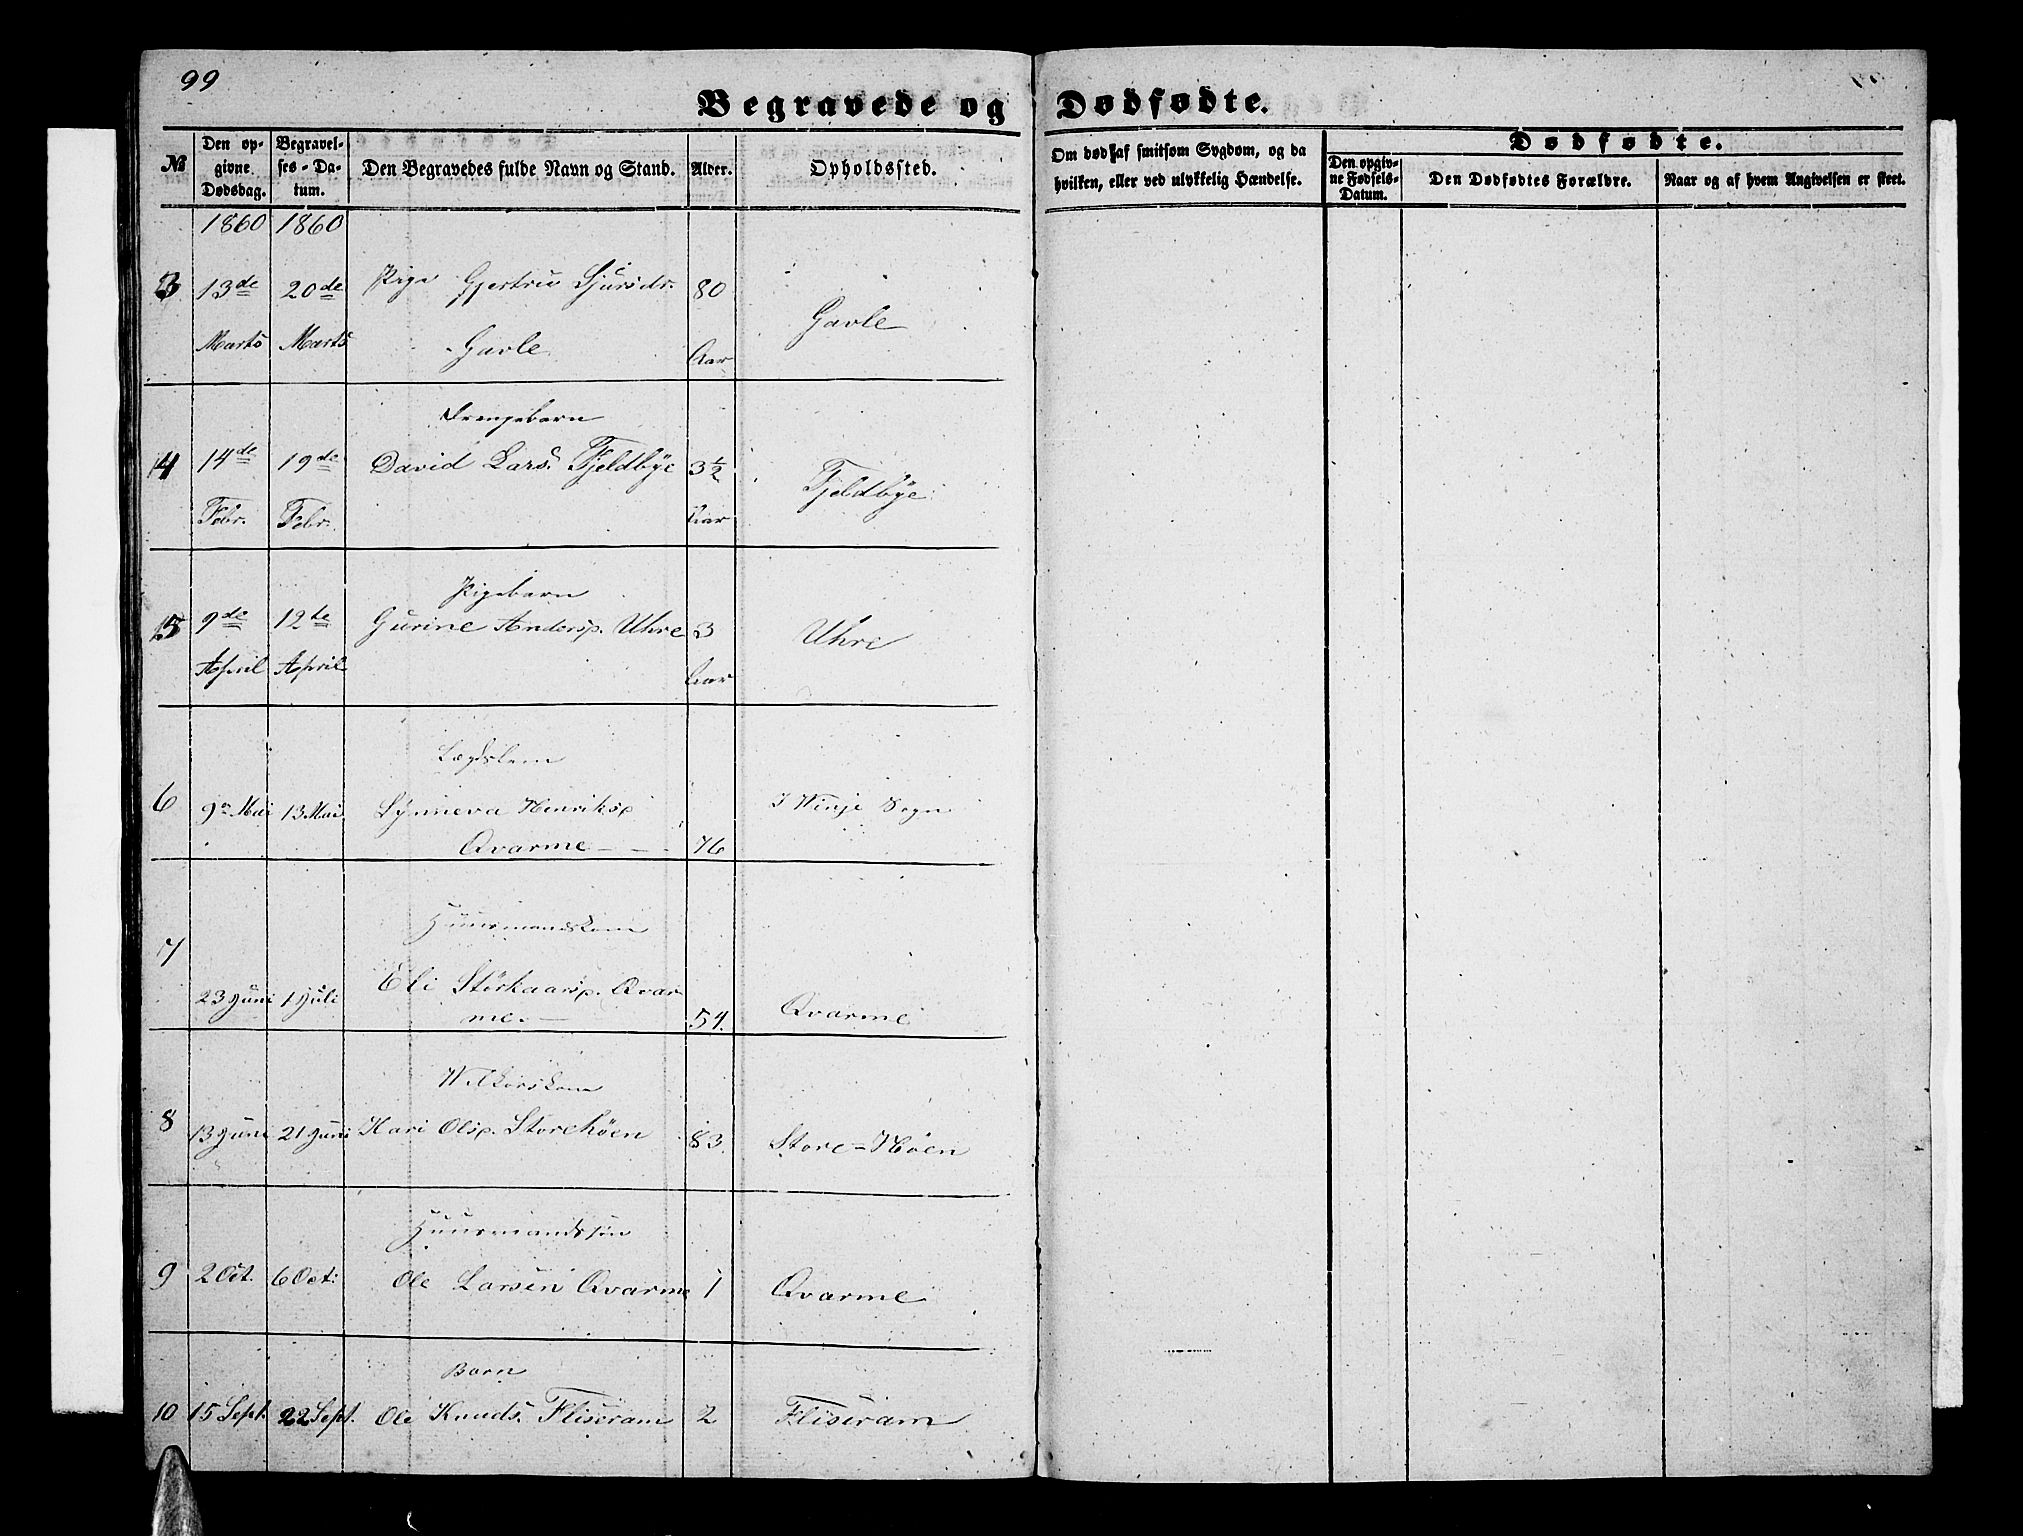 99
Begravede og Dødfødte.
№
Den opgivne Dødsdag.
Begravelses-Datum.
Den Begravedes fulde Navn og Stand.
Alder.
Opholdssted.
Om død af smitsom Sygdom, og da hvilken, eller ved ulykkelig Hændelse.
Dødfødte.
Den opgivne Fødsels-Datum.
Den Dødfødtes Forældre.
Naar og af hvem Angivelsen er skeet.
1860 1860
3 13de 20de Pige Gjertru Sjursdr. 80
Marts Marts Gavle Aar Gavle
Drengebarn
4 14de 19de David Lars. Fjeldbye 3½ Fjeldbye
Febr. Febr. Aar
Pigebarn
5 9de 12te Gurine Andersp. Uhre 3 Uhre
April April Aar
Lægdslem
6 9n Mai 13 Mai Synneva Henriksp I Winje Sogn
Qvarme 76
Huusmandskone
7 23 Juni 1 Juli Eli Störkaarsp. Qvar
me. 54. Qvarme
Wilkorskone
8 13 Juni 21 Juni Kari Olsp. Storehöen 83. Store-Höen
Huusmandssön
9 2 Oct. 6 Oct: Ole Larsen Qvarme 1 Qvarme
Barn
10 15 Sept. 22 Sept. Ole Knuds. Fliseram 2 Fliseram